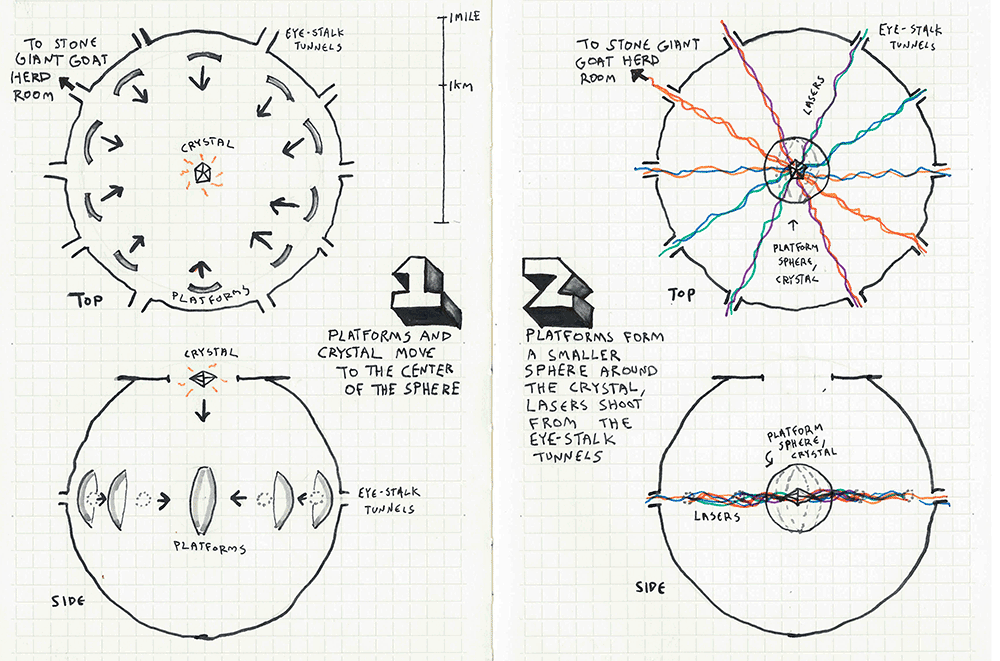 TO STONE
GIANT GOAT
HERD
ROOM
EYE-STALK
TUNNELS
1 MILE
1KM
CRYSTAL
PLATFORMS
TOP
1
PLATFORMS AND
CRYSTAL MOVE
TO THE CENTER
OF THE SPHERE
CRYSTAL
EYE-STALK
TUNNELS
PLATFORMS
SIDE
TO STONE GIANT
GOAT HERD
ROOM
EYE-STALK
TUNNELS
LASERS
PLATFORM
SPHERE,
CRYSTAL
TOP
2
PLATFORMS FORM
A SMALLER
SPHERE AROUND
THE CRYSTAL,
LASERS SHOOT
FROM THE
EYE-STALK
TUNNELS
PLATFORM
SPHERE,
CRYSTAL
LASERS
SIDE